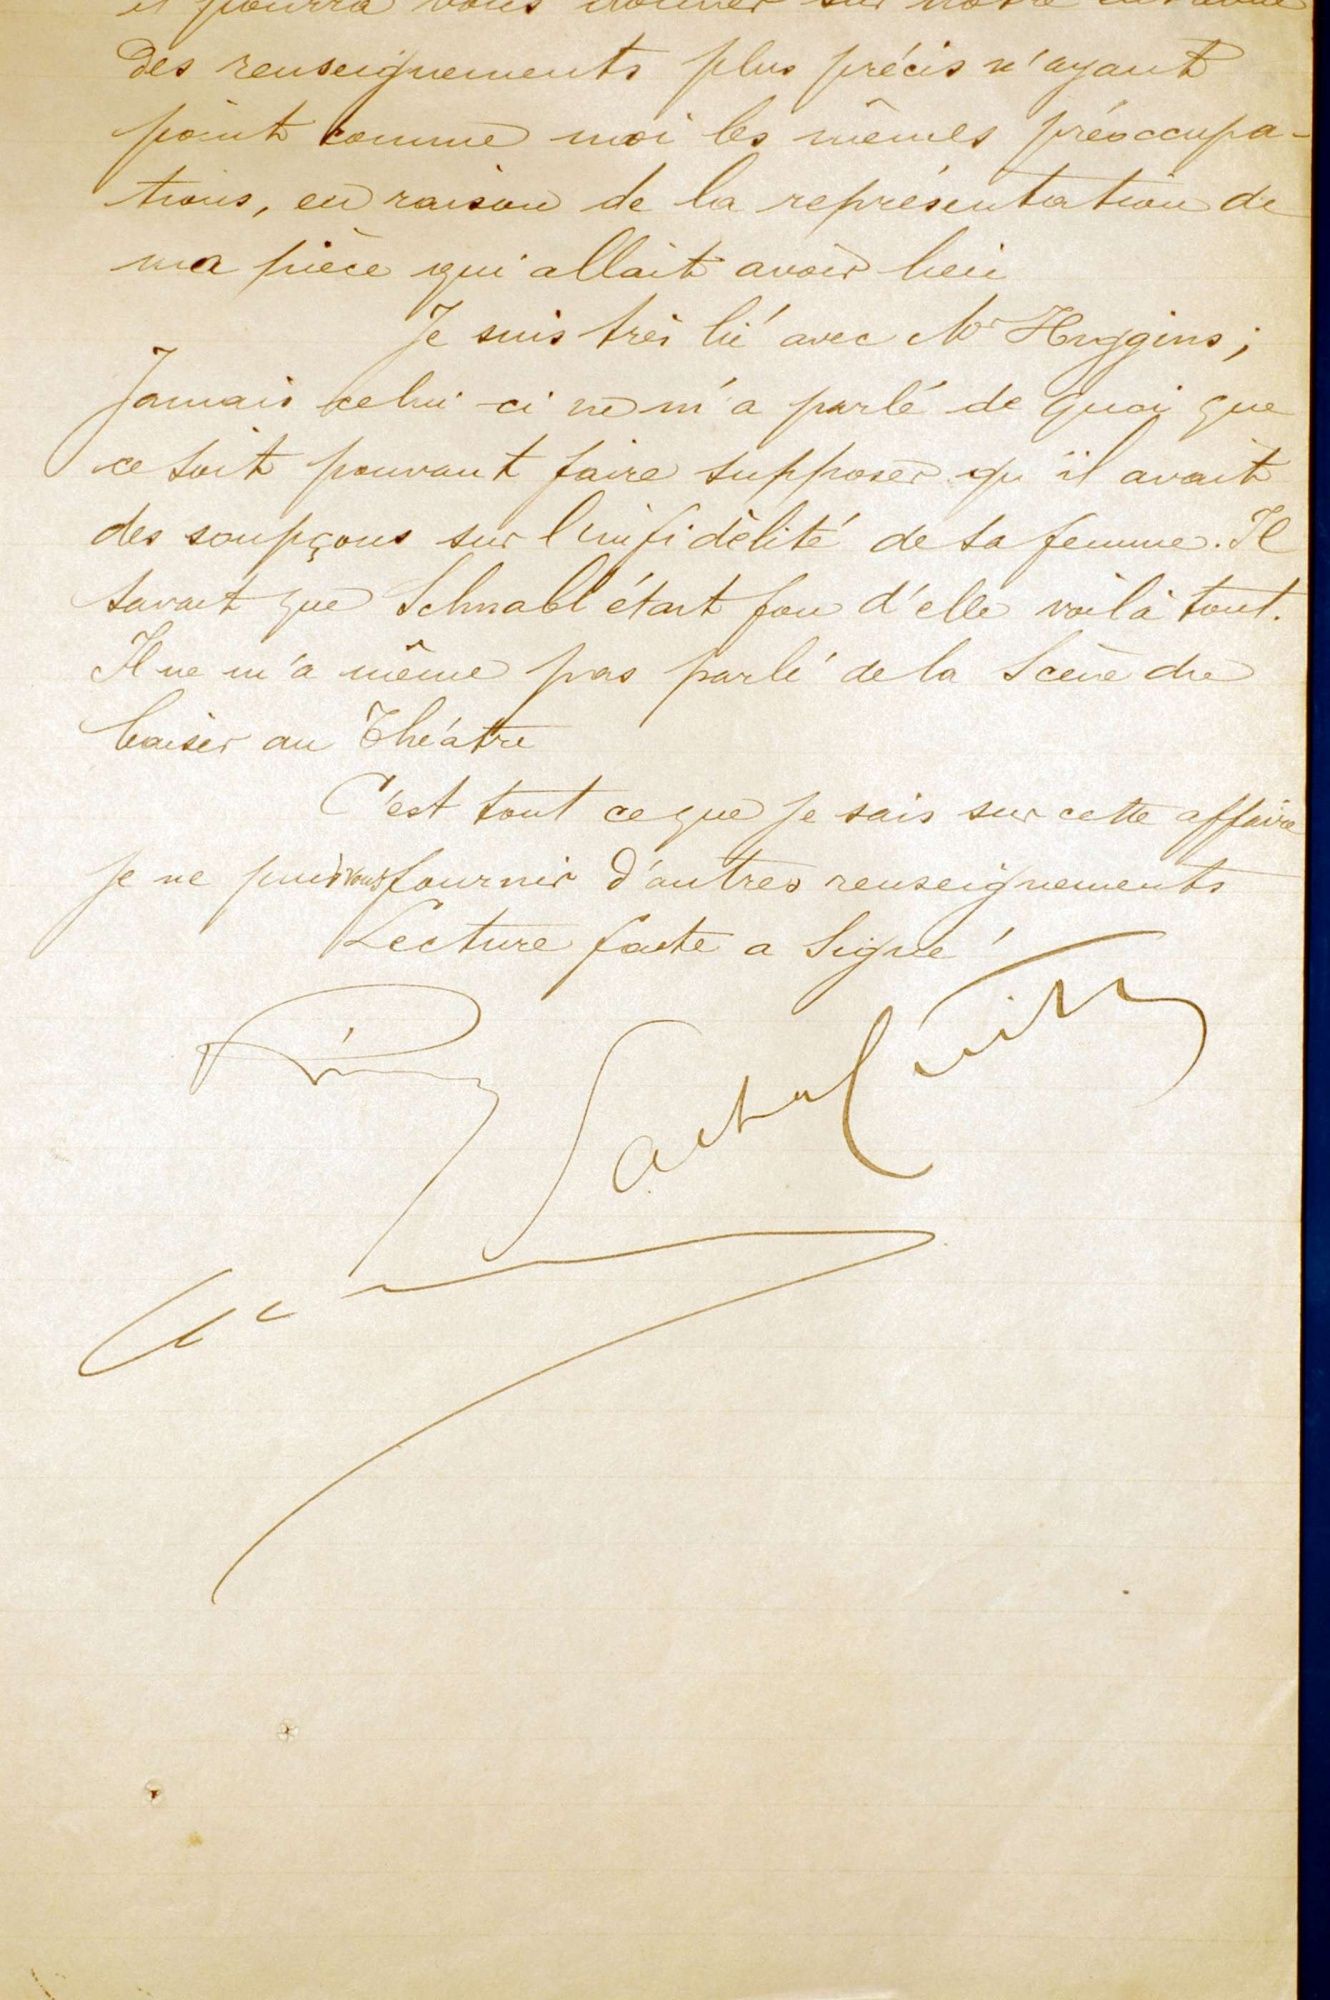 il pourra vous donner sur notre entrevue
des renseignements plus précis n'ayant
point comme moi les mêmes préoccupa-
tions, en raison de la représentation de
ma pièce qui allait avoir lieu
Je suis très lié avec Mr Huggins;
Jamais celui-ci ne m'a parlé de quoi que
ce soit pouvant faire supposer qu'il avait
des soupçons sur l'infidélité de sa femme. Il
savait que Schnabl était fou d'elle voilà tout.
Il ne m'a même pas parlé de la Scène du
baiser au Théâtre
C'est tout ce que je sais sur cette affaire
je ne puis vous fournir d'autres renseignements
Lecture faite a Signé
Sacha Guitry